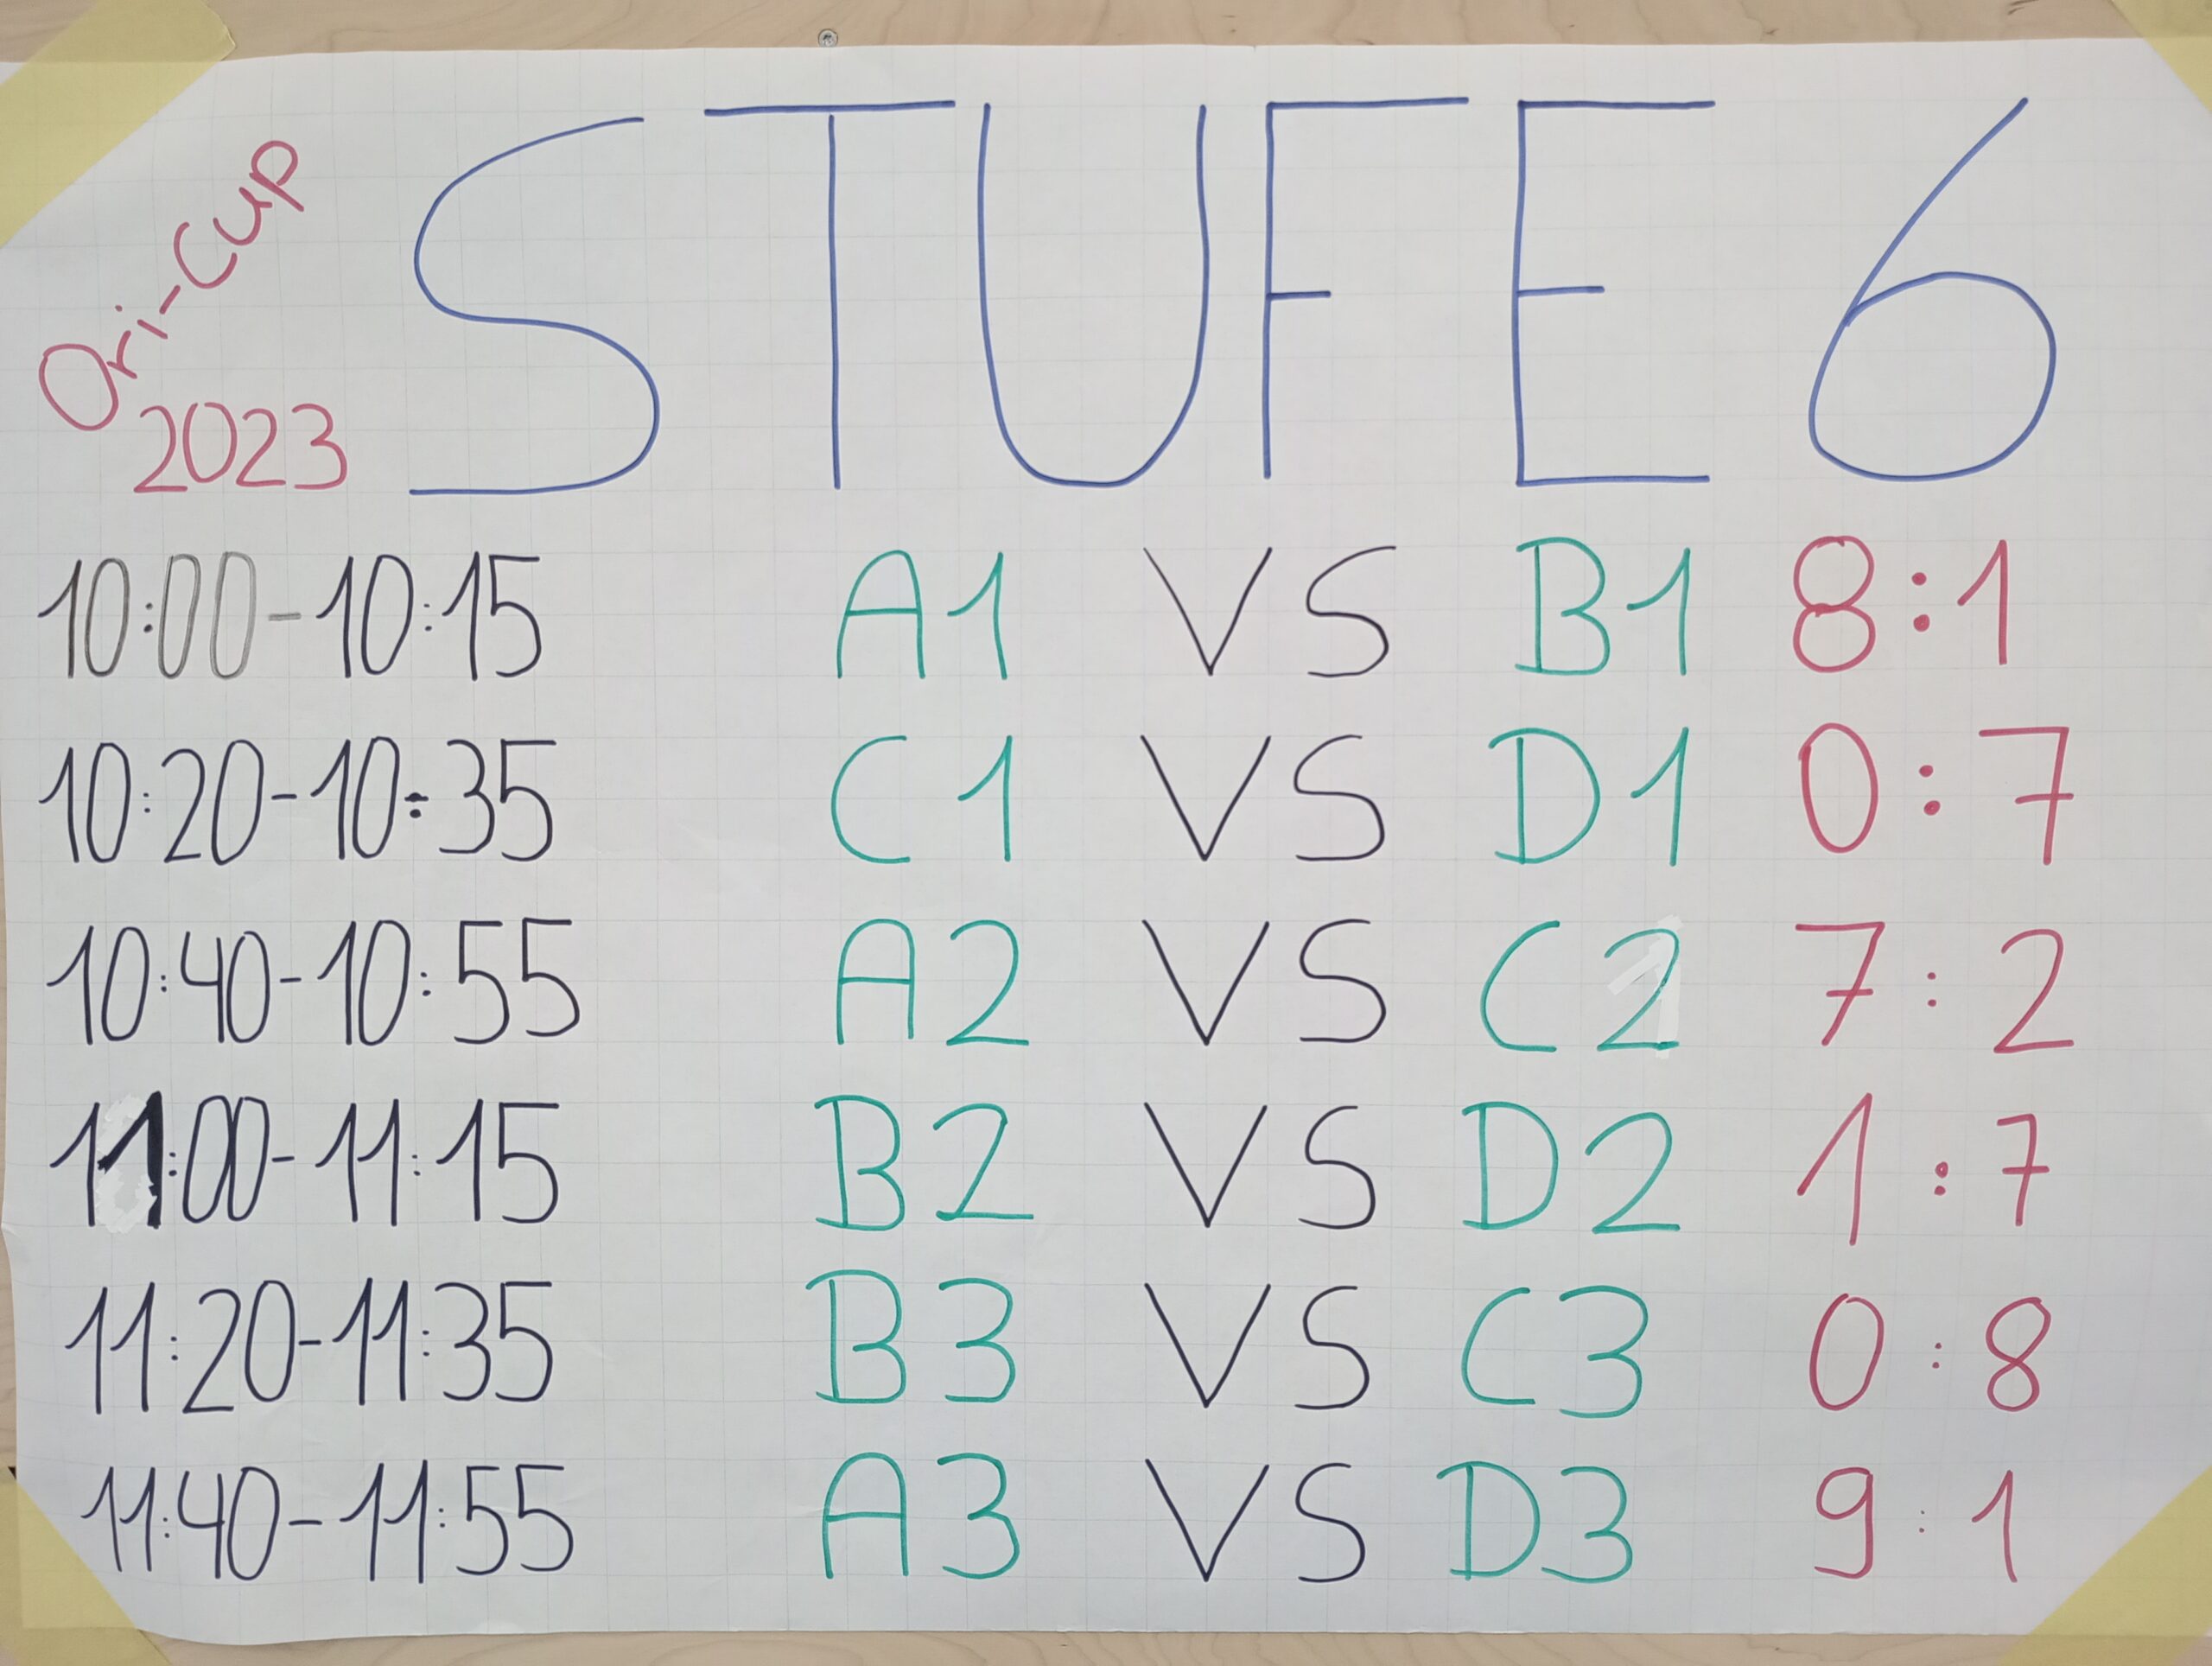 Ori-Cup
2023
STUFE 6
10:00-10:15 A1 VS B1 8:1
10:20-10:35 C1 VS D1 0:7
10:40-10:55 A2 VS C2 7:2
11:00-11:15 B2 VS D2 1:7
11:20-11:35 B3 VS C3 0:8
11:40-11:55 A3 VS D3 9:1